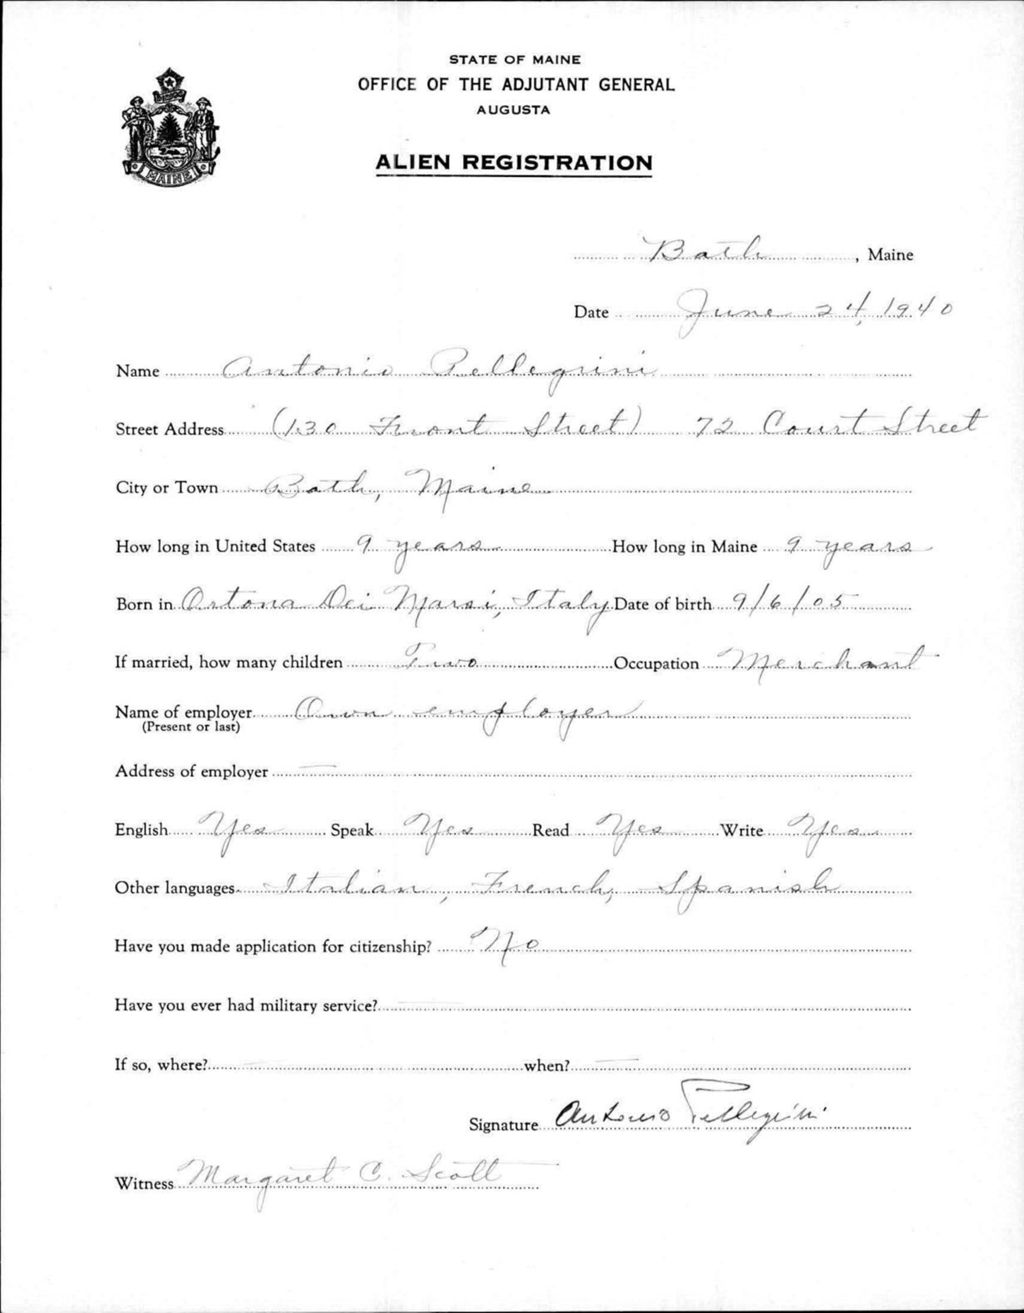 STATE OF MAINE
OFFICE OF THE ADJUTANT GENERAL
AUGUSTA
ALIEN REGISTRATION
MAINE
Bath, Maine
Date June 24, 1940
Name Antonio Pellegrini
Street Address (130 Front Street) 72 Court Street
City or Town Bath, Maine
How long in United States 9 years How long in Maine 9 years
Born in Ortona Dei Marsi, Italy Date of birth 9/6/05
If married, how many children Two Occupation Merchant
Name of employer Own employer
(Present or last)
Address of employer —
English Yes Speak Yes Read Yes Write Yes
Other languages Italian, French, Spanish
Have you made application for citizenship? No
Have you ever had military service? —
If so, where? — when? —
Signature Antonio Pellegrini
Witness Margaret C. Scott